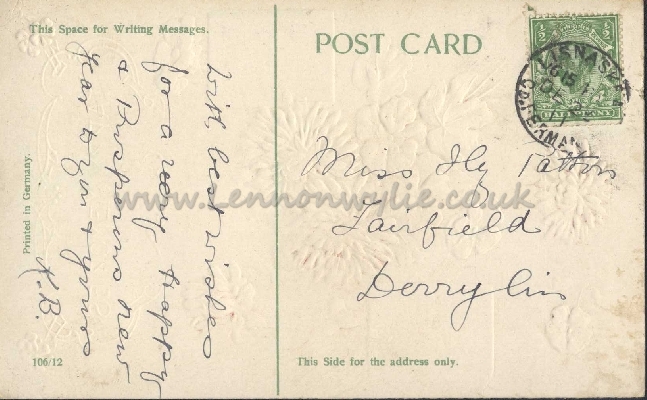 This Space for Writing Messages.
With best wishes
for a very happy
& Prosperous New
Year to you & yours
K.B.
Printed in Germany.
106/12
POST CARD
1/2
1/2
HALFPENNY
LISNASKEA
CO. FERMANAGH
Miss Tatton
Fairfield
Derrylin
This Side for the address only.
www.Lennonwylie.co.uk